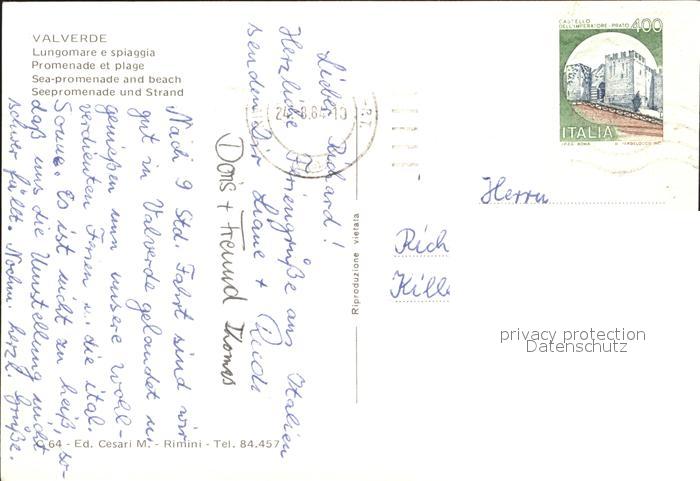 VALVERDE
Lungomare e spiaggia
Promenade et plage
Sea-promenade and beach
Seepromenade und Strand
CASTELLO
DELL'IMPERATORE - PRATO
400
ITALIA
24. 8.84-10
Lieber Richard!
Herzliche Feriengrüße aus Italien
senden Dir Liane + Rudi
Doris + Freund Thomas
Nach 9 Std. Fahrt sind wir
gut in Valverde gelandet u.
genießen nun unsere wohl-
verdienten Ferien u. die ital.
Sonne. Es ist nicht zu heiß, so-
daß uns die Umstellung nicht
schwer fällt. Nochm. herzl. Grüße.
Riproduzione vietata
Herrn
Rich
Kill
privacy protection
Datenschutz
64 - Ed. Cesari M. - Rimini - Tel. 84.457